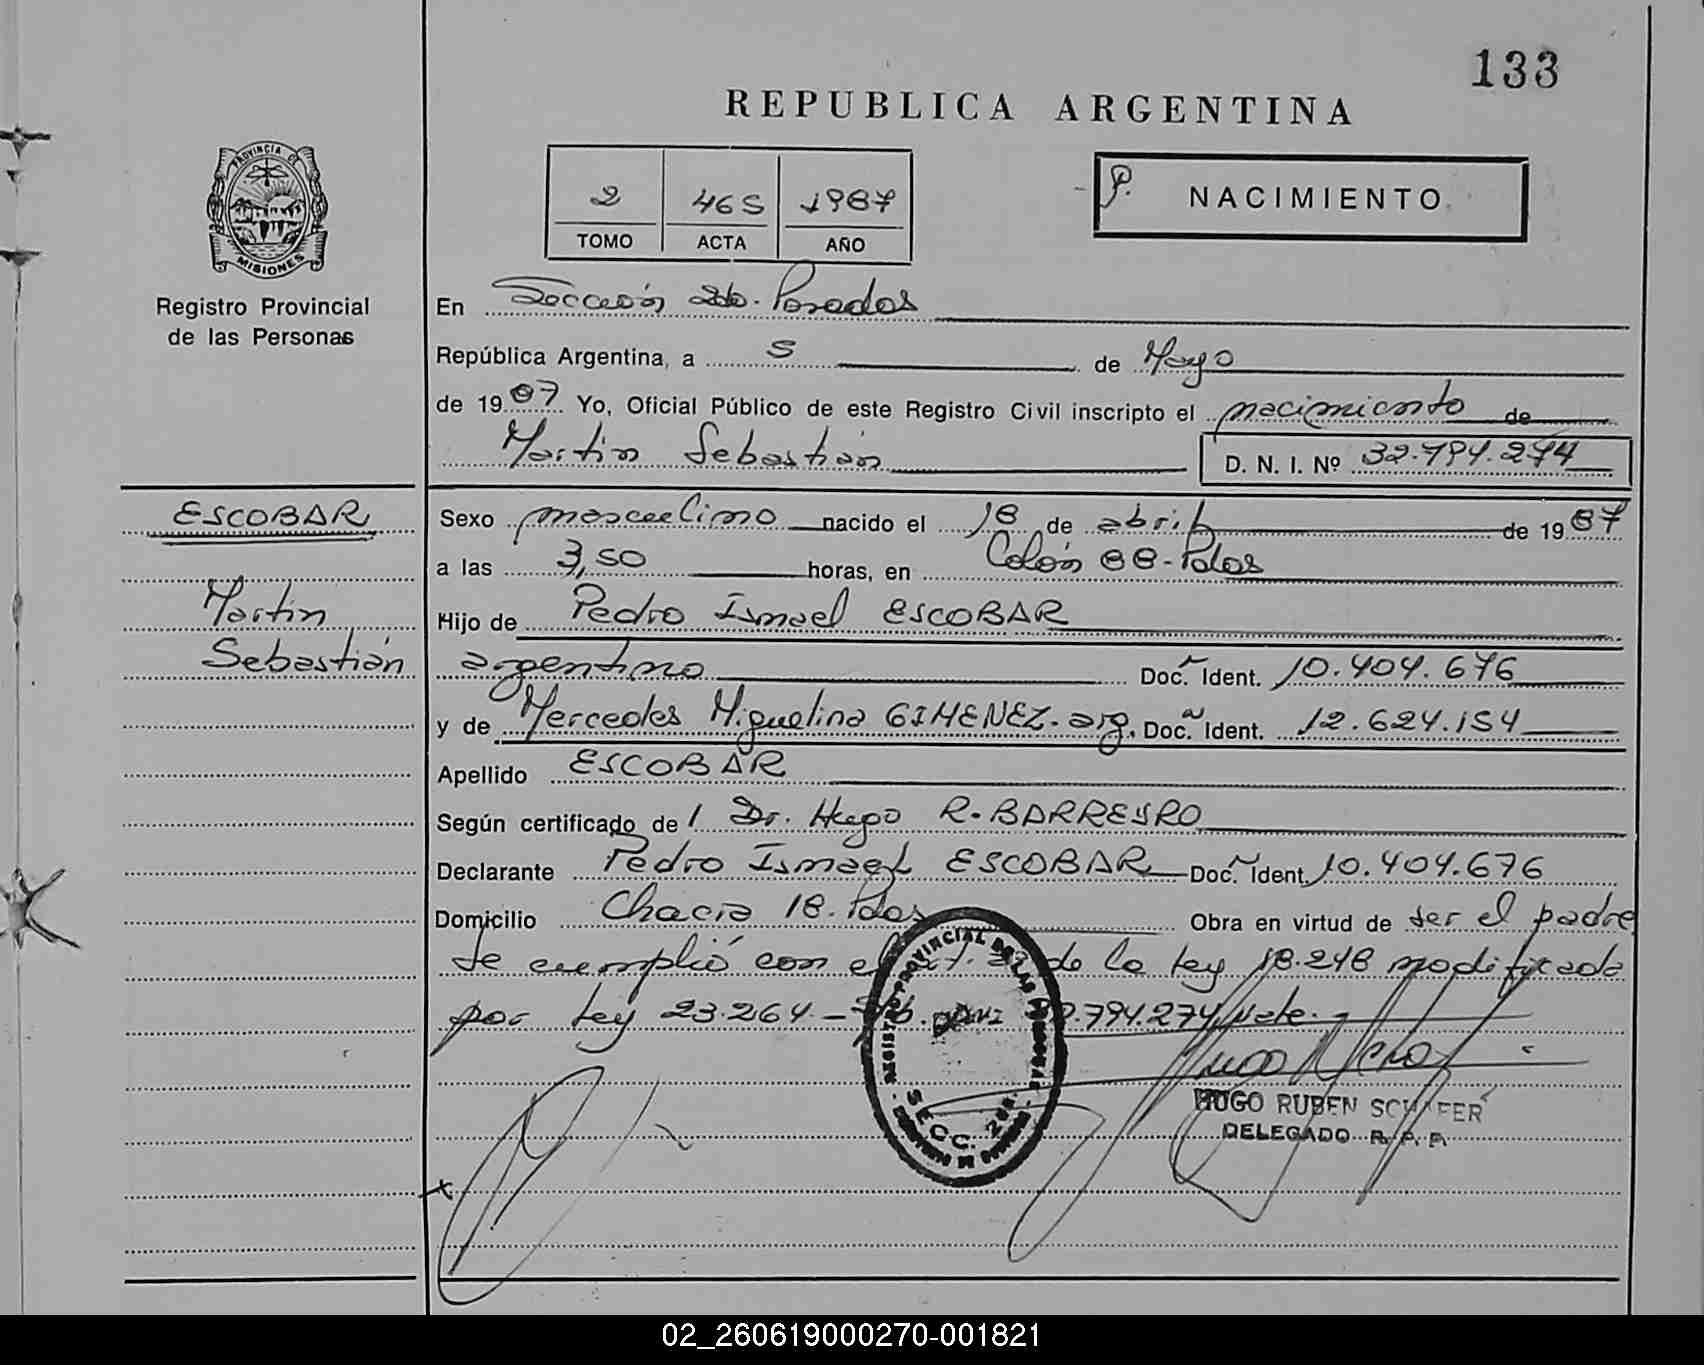 133
REPUBLICA ARGENTINA
2 465 1987
TOMO ACTA AÑO
P. NACIMIENTO
PROVINCIA DE
MISIONES
Registro Provincial
de las Personas
En Sección 2da. Posadas
República Argentina, a 5 de Mayo
de 1987 Yo, Oficial Público de este Registro Civil inscripto el nacimiento de
Martin Sebastián D. N. I. Nº 32.794.274
ESCOBAR
Martin
Sebastián
Sexo masculino nacido el 18 de abril de 1987
a las 3,50 horas, en Colón 88-Pdas
Hijo de Pedro Ismael ESCOBAR
argentino Doc. Ident. 10.404.676
y de Mercedes Miguelina GIMENEZ- arg. Doc. Ident. 12.624.154
Apellido ESCOBAR
Según certificado de l Dr. Hugo R. BARREYRO
Declarante Pedro Ismael ESCOBAR Doc. Ident. 10.404.676
Domicilio Chacra 18. Pdas Obra en virtud de ser el padre
Se cumplió con el de la ley 18.248 modificada
por ley 23.264 - .794.274 vale.-
REGISTRO PROVINCIAL DE LAS PERSONAS
SECC. 2da.
HUGO RUBEN SCHAFER
DELEGADO R. P. P.
02_260619000270-001821